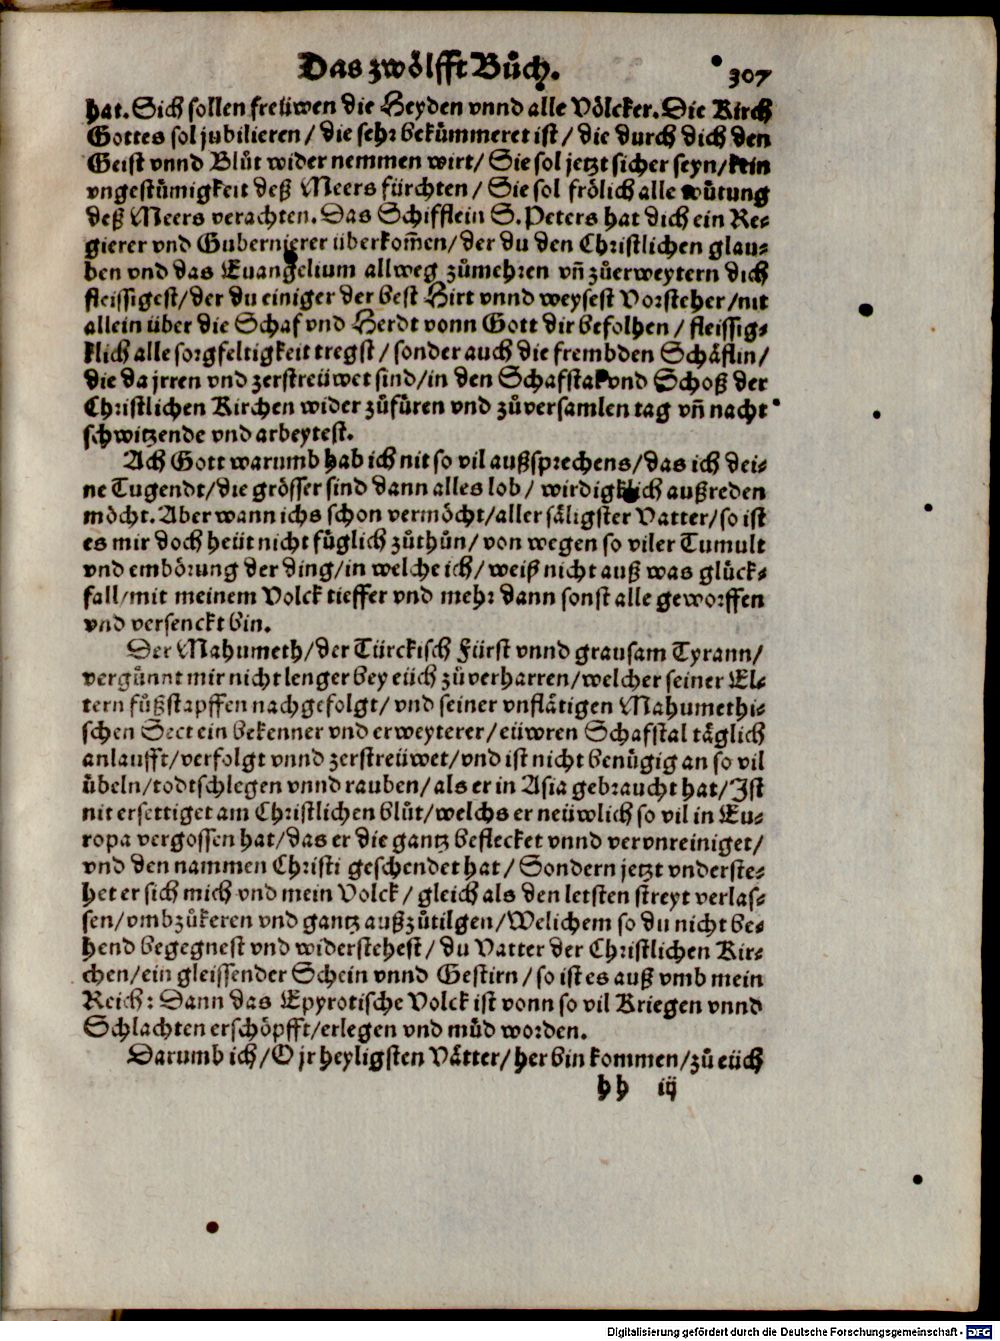 Das zwölfft Bůch. 307
hat. Sich sollen freüwen die Heyden vnnd alle Völcker. Die Kirch
Gottes sol jubilieren / die sehr bekümmeret ist / die durch dich den
Geist vnnd Blůt wider nemmen wirt / Sie sol jetzt sicher seyn / kein
vngestümigkeit deß Meers fürchten / Sie sol frölich alle wütung
deß Meers verachten. Das Schifflein S. Peters hat dich ein Re⸗
gierer vnd Gubernierer überkom̄en / der du den Christlichen glau⸗
ben vnd das Euangelium allweg zůmehren vn̄ zůerweytern dich
fleissigest / der du einiger der best Hirt vnnd weysest Vorsteher / nit
allein über die Schaf vnd Herdt vonn Gott dir befolhen / fleissig⸗
klich alle sorgfeltigkeit tregst / sonder auch die frembden Schäflin /
die da jrren vnd zerstreüwet sind / in den Schafstal vnd Schoß der
Christlichen Kirchen wider zůfüren vnd zůversamlen tag vn̄ nacht
schwitzende vnd arbeytest.
Ach Gott warumb hab ich nit so vil außsprechens / das ich dei⸗
ne Tugendt / die grösser sind dann alles lob / wirdigklich außreden
möcht. Aber wann ichs schon vermöcht / aller säligster Vatter / so ist
es mir doch heüt nicht füglich zůthůn / von wegen so viler Tumult
vnd embörung der ding / in welche ich / weiß nicht auß was glück⸗
fall / mit meinem Volck tieffer vnd mehr dann sonst alle geworffen
vnd versenckt bin.
Der Mahumeth / der Türckisch Fürst vnnd grausam Tyrann /
vergünnt mir nicht lenger bey eüch zů verharren / welcher seiner El⸗
tern fůßstapffen nachgefolgt / vnd seiner vnflätigen Mahumethi⸗
schen Sect ein bekenner vnd erweyterer / eüwren Schafstal täglich
anlaufft / verfolgt vnnd zerstreüwet / vnd ist nicht benügig an so vil
übeln / todtschlegen vnnd rauben / als er in Asia gebraucht hat / Ist
nit ersettiget am Christlichen blůt / welchs er neüwlich so vil in Eu⸗
ropa vergossen hat / das er die gantz beflecket vnnd vervnreiniget /
vnd den nammen Christi geschendet hat / Sondern jetzt vnderste⸗
het er sich mich vnd mein Volck / gleich als den letsten streyt verlas⸗
sen / vmbzůkeren vnd gantz außzůtilgen / Welichem so du nicht be⸗
hend begegnest vnd widerstehest / du Vatter der Christlichen Kir⸗
chen / ein gleissender Schein vnnd Gestirn / so ist es auß vmb mein
Reich: Dann das Epyrotische Volck ist vonn so vil Kriegen vnnd
Schlachten erschöpfft / erlegen vnd müd worden.
Darumb ich / O jr heyligsten Vätter / her bin kommen / zů eüch
hh iij
Digitalisierung gefördert durch die Deutsche Forschungsgemeinschaft - DFG